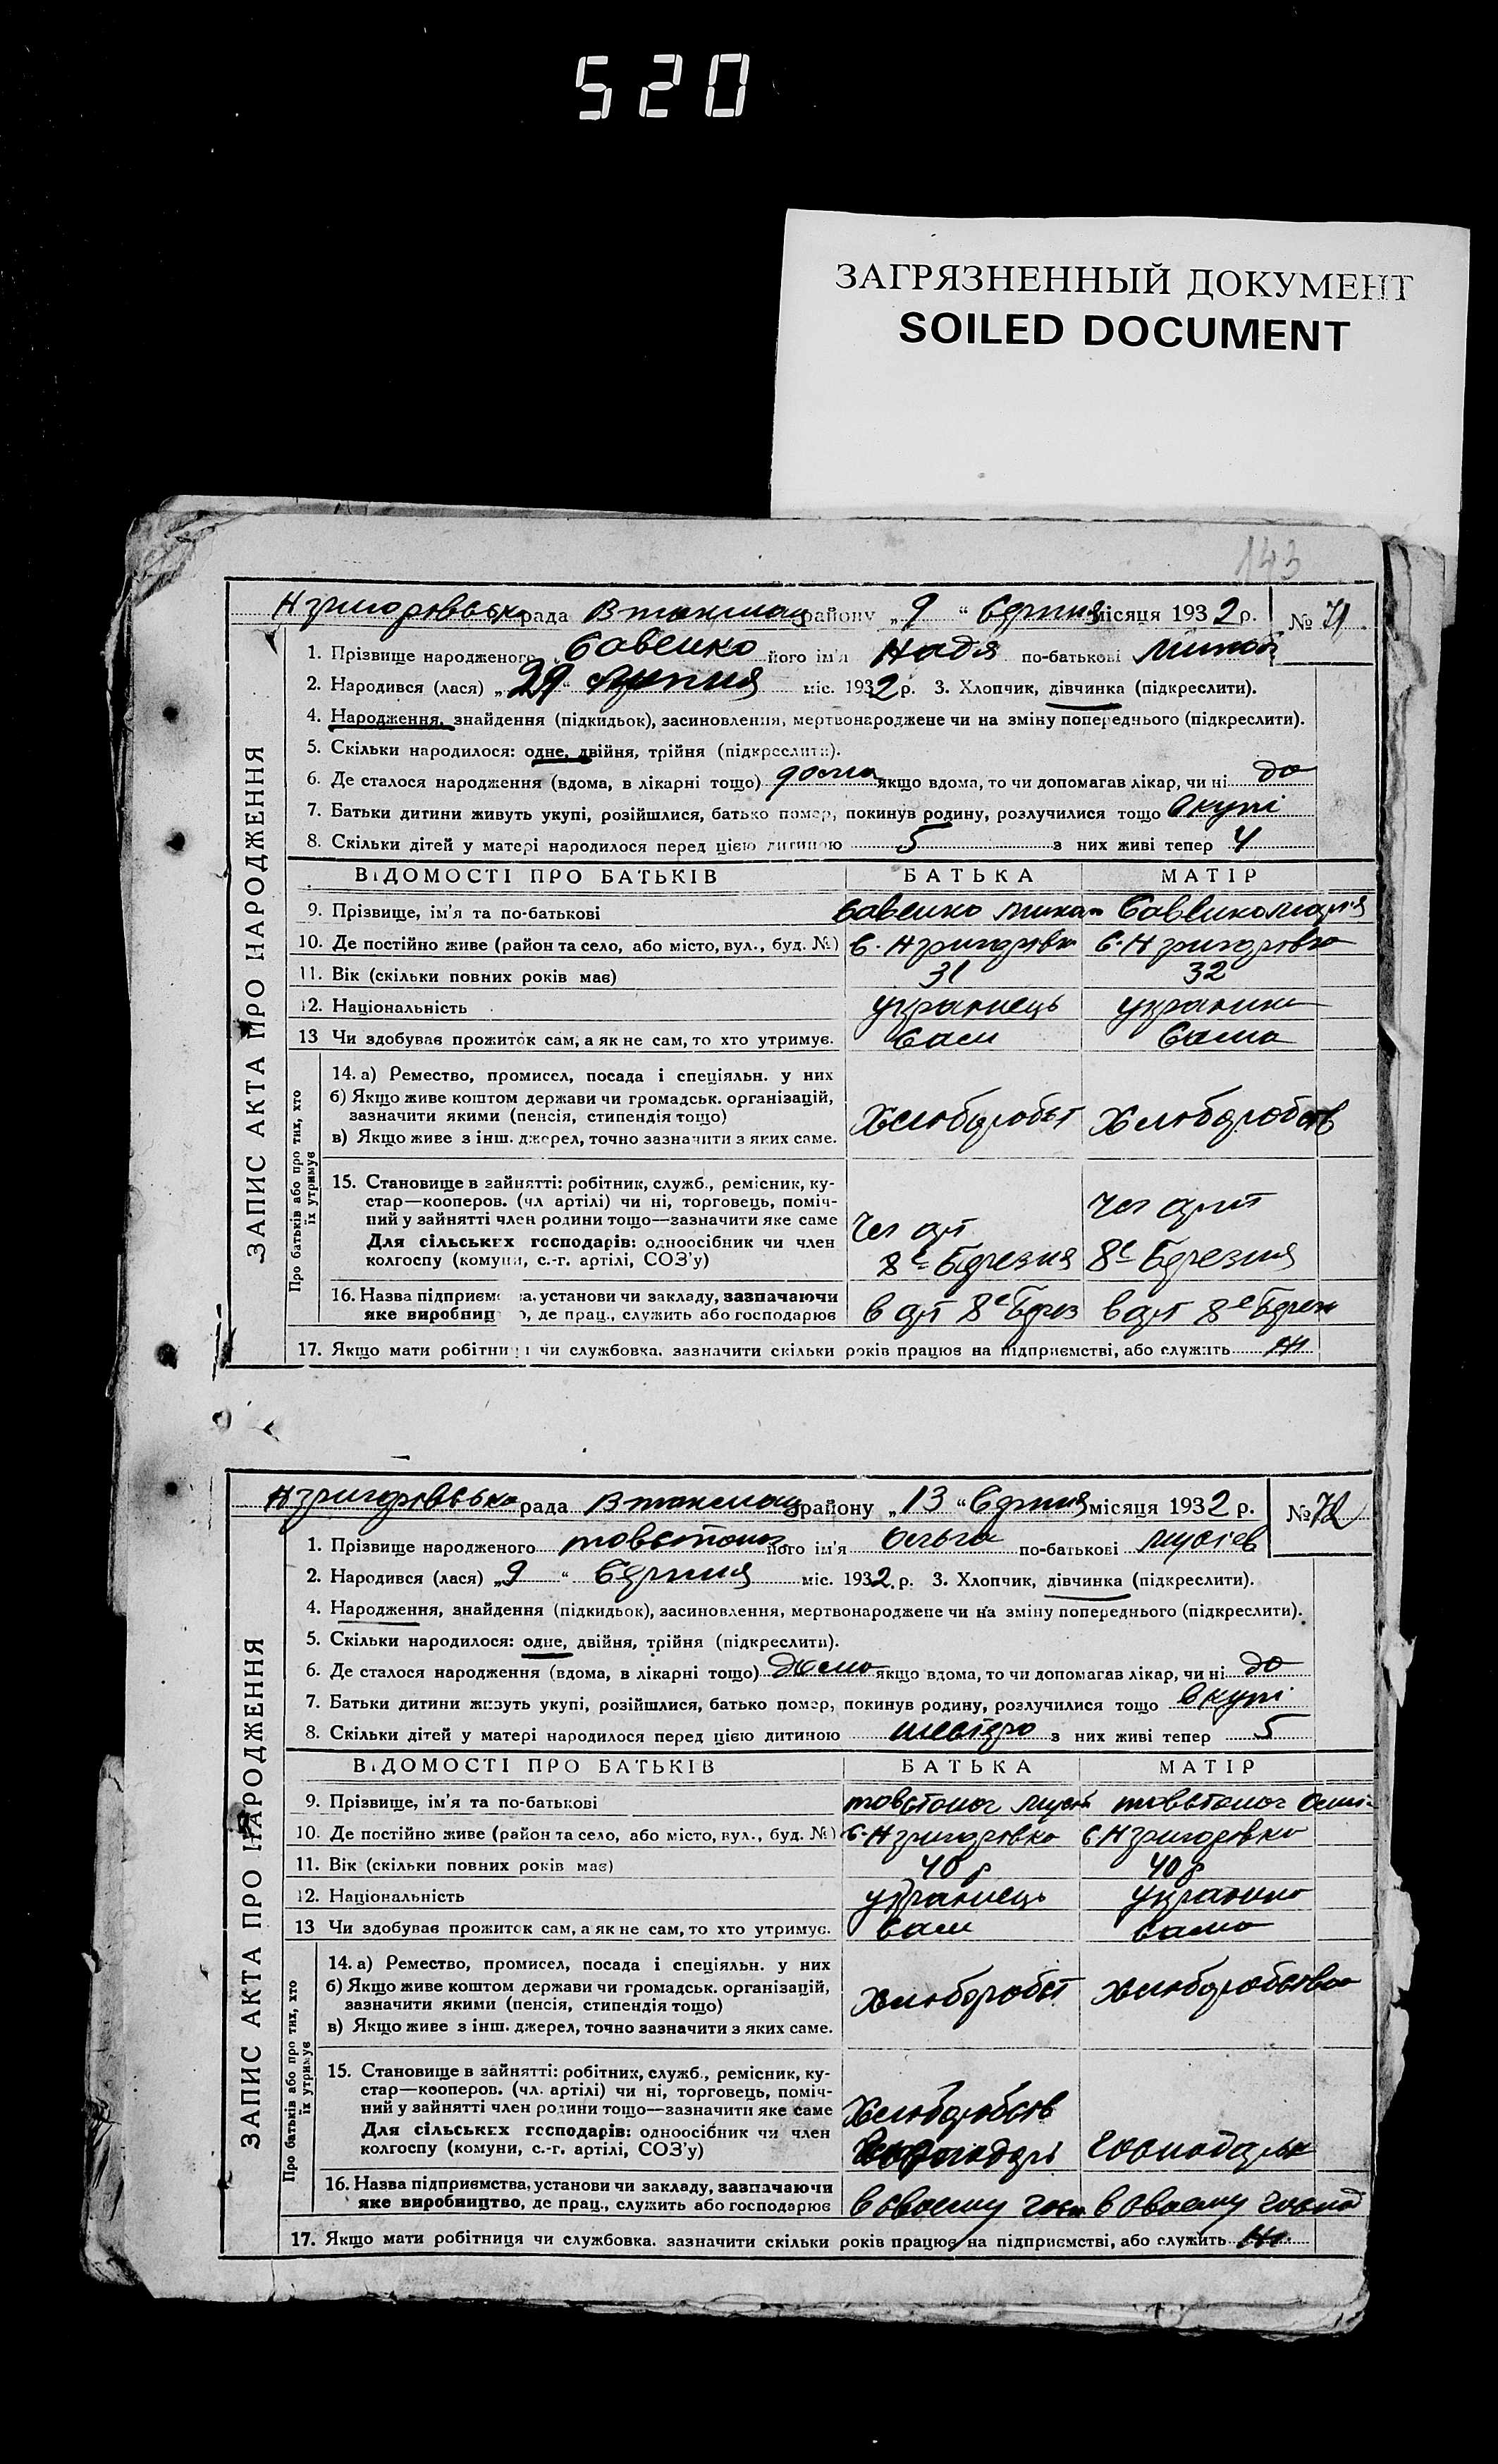 520
ЗАГРЯЗНЕННЫЙ ДОКУМЕНТ
SOILED DOCUMENT
143
ЗАПИС АКТА ПРО НАРОДЖЕННЯ
Н григоровська рада В токмац району „9“ Серпня місяця 1932 р. № 71
1. Прізвище народженого Савенко його ім'я Надя по-батькові
2. Народився (лася) „29“ Липня міс. 1932 р. 3. Хлопчик, дівчинка (підкреслити).
4. Народження, знайдення (підкидьок), засиновлення, мертвонароджене чи на зміну попереднього (підкреслити).
5. Скільки народилося: одне, двійня, трійня (підкреслити).
6. Де сталося народження (вдома, в лікарні тощо) дома якщо вдома, то чи допомагав лікар, чи ні
7. Батьки дитини живуть укупі, розійшлися, батько помер, покинув родину, розлучилися тощо вкупі
8. Скільки дітей у матері народилося перед цією дитиною 5 з них живі тепер 4
ВІДОМОСТІ ПРО БАТЬКІВ БАТЬКА МАТІР
9. Прізвище, ім'я та по-батькові Савенко Савенко Марія
10. Де постійно живе (район та село, або місто, вул., буд. №) с. Н григоровка с. Н григоровка
11. Вік (скільки повних років має) 31 32
12. Національність українець українка
13 Чи здобуває прожиток сам, а як не сам, то хто утримує. Сам Сама
Про батьків або про тих, хто їх утримує
14. а) Ремество, промисел, посада і спеціяльн. у них
б) Якщо живе коштом держави чи громадськ. організацій,
зазначити якими (пенсія, стипендія тощо) Хлюборобст Хлюборобств
в) Якщо живе з інш. джерел, точно зазначити з яких саме.
15. Становище в зайнятті: робітник, служб., ремісник, ку-
стар—кооперов. (чл артілі) чи ні, торговець, поміч-
ний у зайнятті член родини тощо—зазначити яке саме
Для сільських господарів: одноосібник чи член
колгоспу (комуни, с.-г. артілі, СОЗ'у) 8е Березня 8е Березня
16. Назва підприємства, установи чи закладу, зазначаючи
яке виробництво, де прац., служить або господарює в арт 8е Берез в арт 8е Берез
17. Якщо мати робітниця чи службовка. зазначити скільки років працює на підприємстві, або служить
ЗАПИС АКТА ПРО НАРОДЖЕННЯ
Н григоровська рада В токмац району „13“ Серпня місяця 1932 р. № 72
1. Прізвище народженого Товстоног його ім'я Ольга по-батькові Мусіев
2. Народився (лася) „9“ Серпня міс. 1932 р. 3. Хлопчик, дівчинка (підкреслити).
4. Народження, знайдення (підкидьок), засиновлення, мертвонароджене чи на зміну попереднього (підкреслити).
5. Скільки народилося: одне, двійня, трійня (підкреслити).
6. Де сталося народження (вдома, в лікарні тощо) дома якщо вдома, то чи допомагав лікар, чи ні
7. Батьки дитини живуть укупі, розійшлися, батько помер, покинув родину, розлучилися тощо вкупі
8. Скільки дітей у матері народилося перед цією дитиною з них живі тепер 5
ВІДОМОСТІ ПРО БАТЬКІВ БАТЬКА МАТІР
9. Прізвище, ім'я та по-батькові Товстоног Мусій Товстоног
10. Де постійно живе (район та село, або місто, вул., буд. №) с. Н григоровка с. Н григоровка
11. Вік (скільки повних років має) 40 р 40 р
12. Національність українець українка
13 Чи здобуває прожиток сам, а як не сам, то хто утримує. сам сама
Про батьків або про тих, хто їх утримує
14. а) Ремество, промисел, посада і спеціяльн. у них
б) Якщо живе коштом держави чи громадськ. організацій,
зазначити якими (пенсія, стипендія тощо) Хлюборобст Хлюборобство
в) Якщо живе з інш. джерел, точно зазначити з яких саме.
15. Становище в зайнятті: робітник, служб., ремісник, ку-
стар—кооперов. (чл. артілі) чи ні, торговець, поміч-
ний у зайнятті член родини тощо—зазначити яке саме Хлюборобств
Для сільських господарів: одноосібник чи член
колгоспу (комуни, с.-г. артілі, СОЗ'у)
16. Назва підприємства, установи чи закладу, зазначаючи
яке виробництво, де прац., служить або господарює в своему госп в своему господ
17. Якщо мати робітниця чи службовка. зазначити скільки років працює на підприємстві, або служить